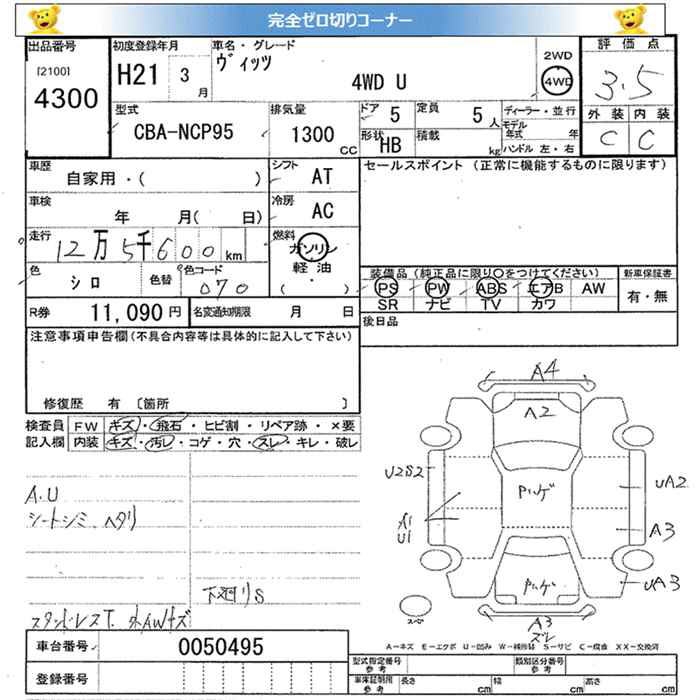 完全ゼロ切りコーナー
出品番号
[2100]
4300
初度登録年月
H21 3 月
車名・グレード
ヴィッツ
4WD U
2WD
4WD
評価点
3.5
外装 内装
C C
型式
CBA-NCP95
排気量
1300 CC
ドア 5
定員 5 人
形状 HB
積載 kg
ディーラー・並行
モデル年式 年
ハンドル 左・右
車歴
自家用・( )
シフト
AT
車検
年 月( 日)
冷房
AC
走行
12万5千600 km
燃料
ガソリン
軽油
( ・ )
色
シロ
色替
色コード
070
R券 11,090円
名変通知期限 月 日
セールスポイント (正常に機能するものに限ります)
装備品(純正品に限り○をつけてください)
PS PW ABS エアB AW
SR ナビ TV カワ
新車保証書
有・無
後日品
注意事項申告欄(不具合内容等は具体的に記入して下さい)
修復歴 有 〔箇所 〕
検査員記入欄
FW キズ・飛石・ヒビ割・リペア跡・×要
内装 キズ・汚レ・コゲ・穴・スレ・キレ・破レ
A.U
シートシミ ヘタリ
下廻りS
スタッドレスT. 外AWキズ
車台番号 0050495
登録番号
A4
A2
U2S2
A1
U1
Pハゲ
UA2
A3
UA3
Pハゲ
A3
ズレ
スペア
A-キズ E-エクボ U-凹み W-補修跡 S-サビ C-腐食 XX-交換済
型式指定番号 参考
類別区分番号 参考
車庫証明用 参考
長さ cm
幅 cm
高さ cm